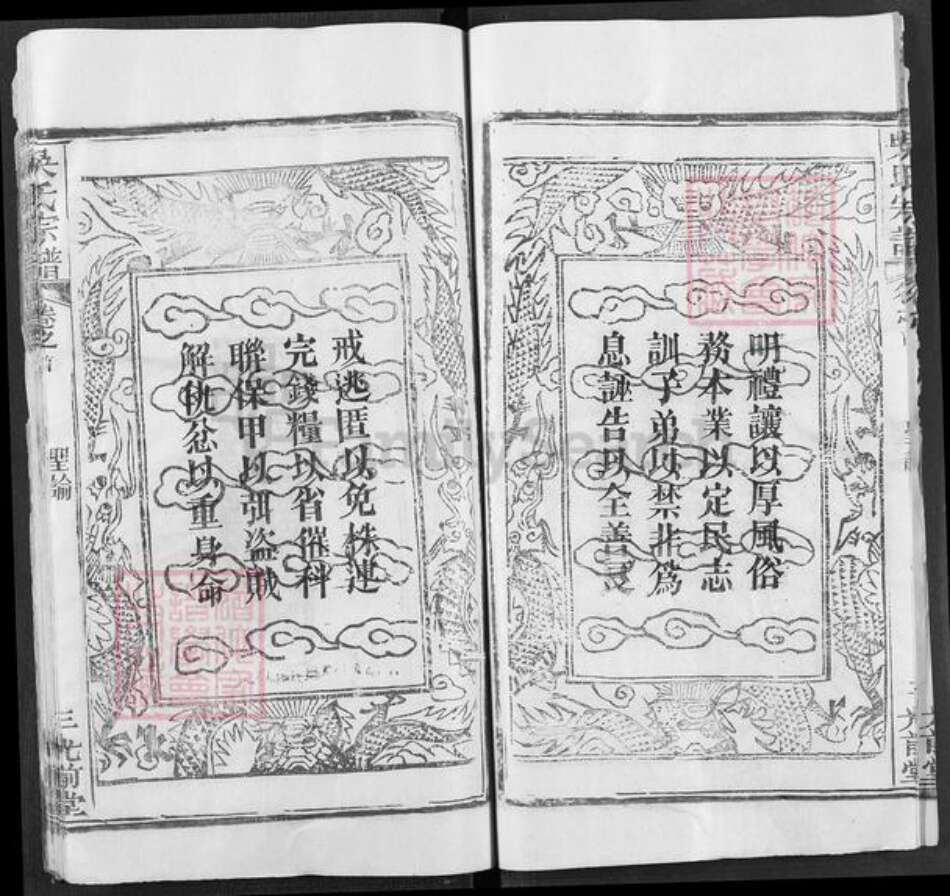 明禮讓以厚風俗
務本業以定民志
訓子弟以禁非爲
息誣告以全善良
戒逃匿以免株連
完錢糧以省催科
聯保甲以弭盜賊
解仇忿以重身命
吳氏宗譜
卷之首
聖諭
三